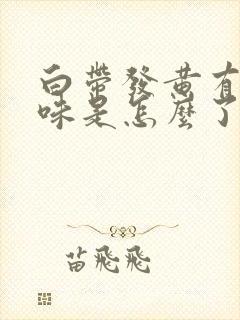 白帶發黃有
味是怎麼了
苗飛飛